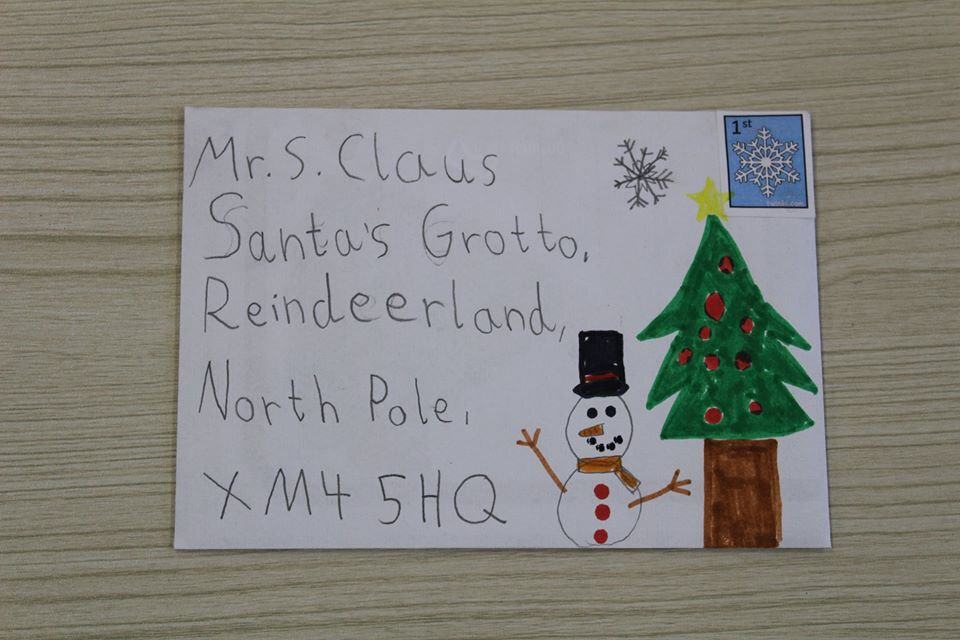 Mr. S. Claus
Santa's Grotto,
Reindeerland,
North Pole,
XM4 5HQ
1st
twinkl.com